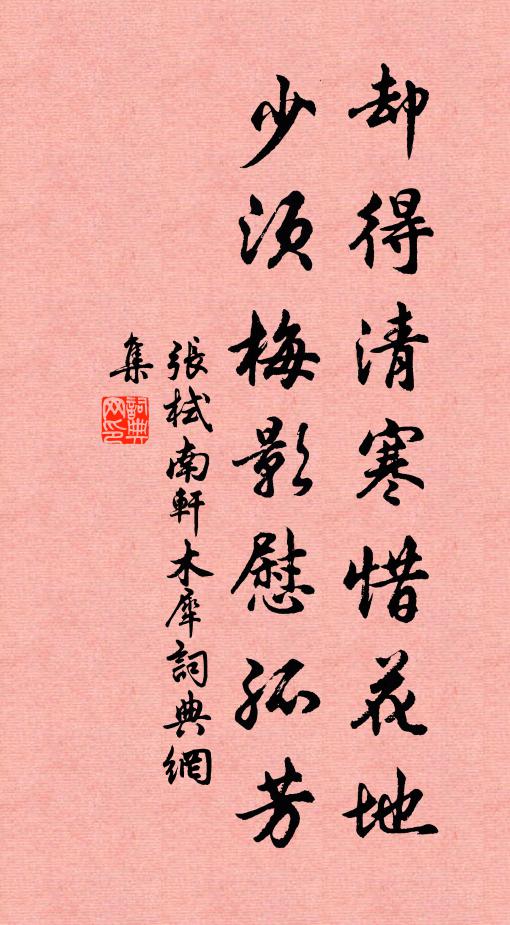 却得清寒惜花地
少须梅影慰孤芳
張栻南軒木犀詞典網
集
詞典网印